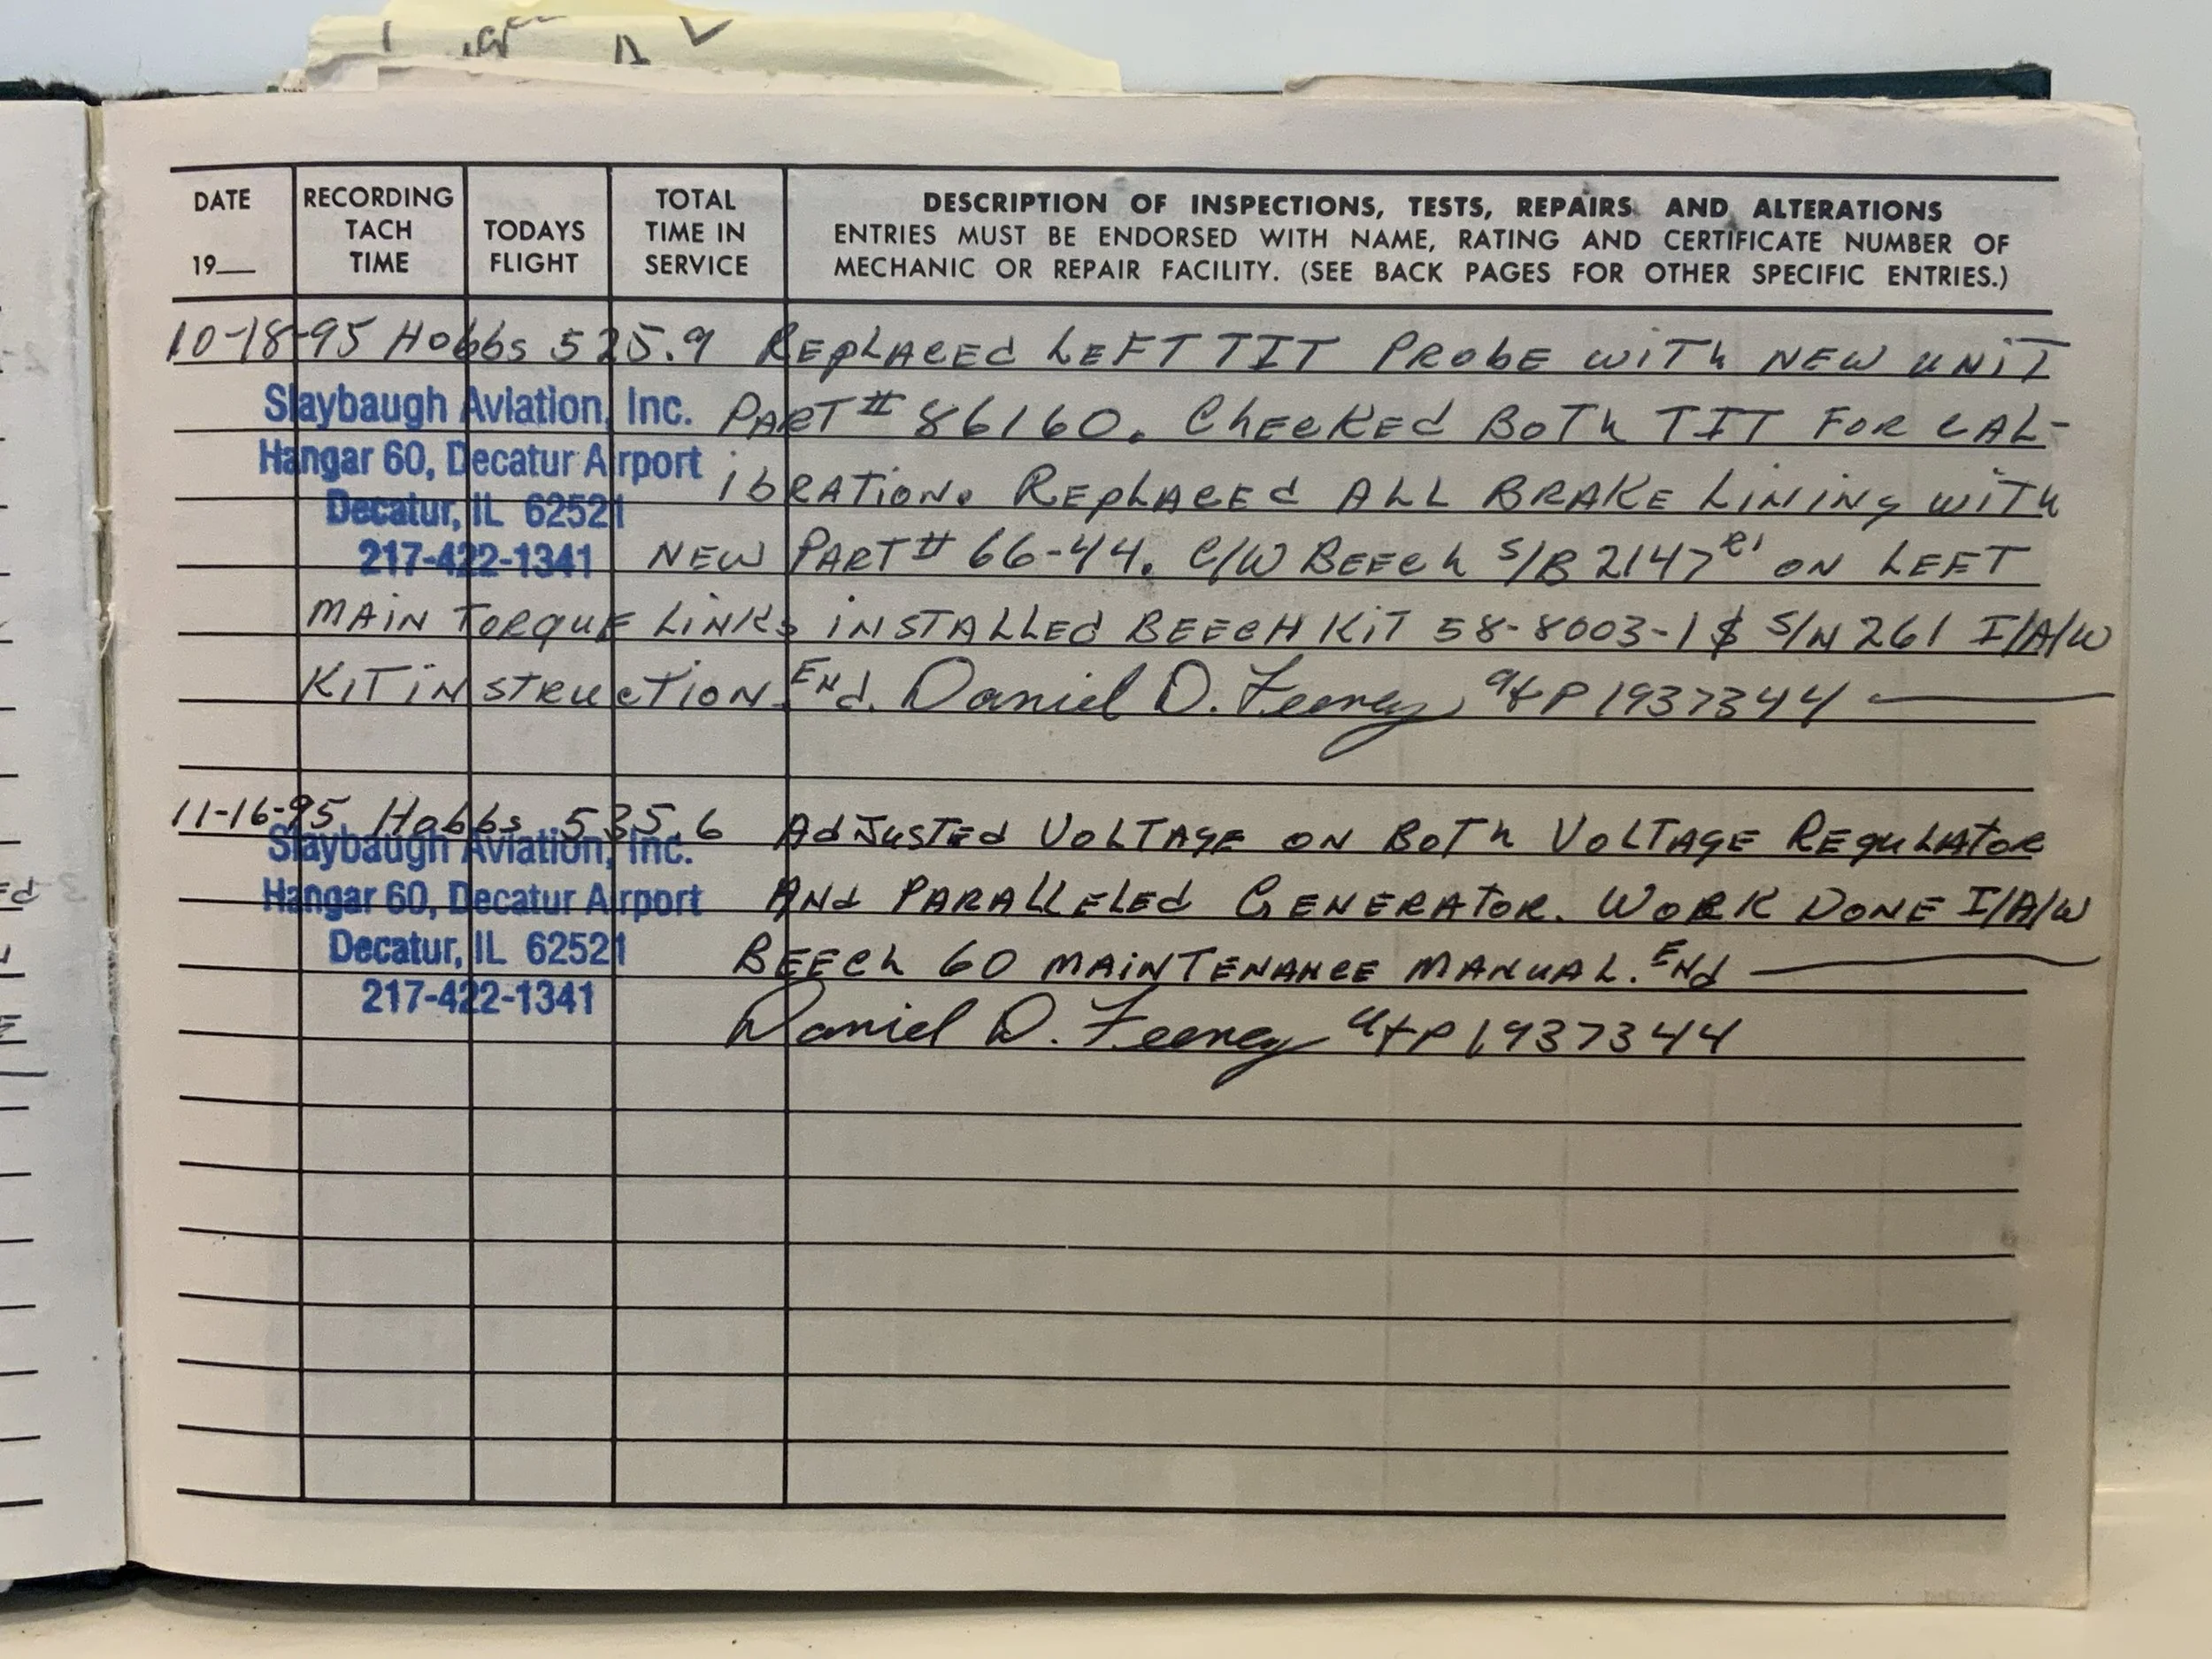 DATE
19__
RECORDING
TACH
TIME
TODAYS
FLIGHT
TOTAL
TIME IN
SERVICE
DESCRIPTION OF INSPECTIONS, TESTS, REPAIRS AND ALTERATIONS
ENTRIES MUST BE ENDORSED WITH NAME, RATING AND CERTIFICATE NUMBER OF
MECHANIC OR REPAIR FACILITY. (SEE BACK PAGES FOR OTHER SPECIFIC ENTRIES.)
10-18-95 Hobbs 525.9 REplACEd LEFT TIT PRobE wiTh NEW uNiT
Slaybaugh Aviation, Inc.
Hangar 60, Decatur Airport
Decatur, IL 62521
217-422-1341
PART # 86160. ChECKEd BoTh TIT FOR CAL-
ibRATioN. REplACEd ALL BRAKE LiNiNg wiTh
NEW PART # 66-44. C/W BEECh S/B 2147 R1 ON LEFT
MAiN TORquE LiNKs iNSTALLEd BEECH KiT 58-8003-1 S/N 261 I/A/W
KiT iNSTRuCTioN ENd. Daniel D. Feeney, A&P 1937344
11-16-95 Hobbs 535.6 AdJusTEd VoLTAgE ON BoTh VoLTAgE REguLAtoR
Slaybaugh Aviation, Inc.
Hangar 60, Decatur Airport
Decatur, IL 62521
217-422-1341
ANd PARALLELEd GENERAtoR. WORK DONE I/A/W
BEECh 60 MAiNTENANCE MANuAL. ENd
Daniel D. Feeney A&P 1937344